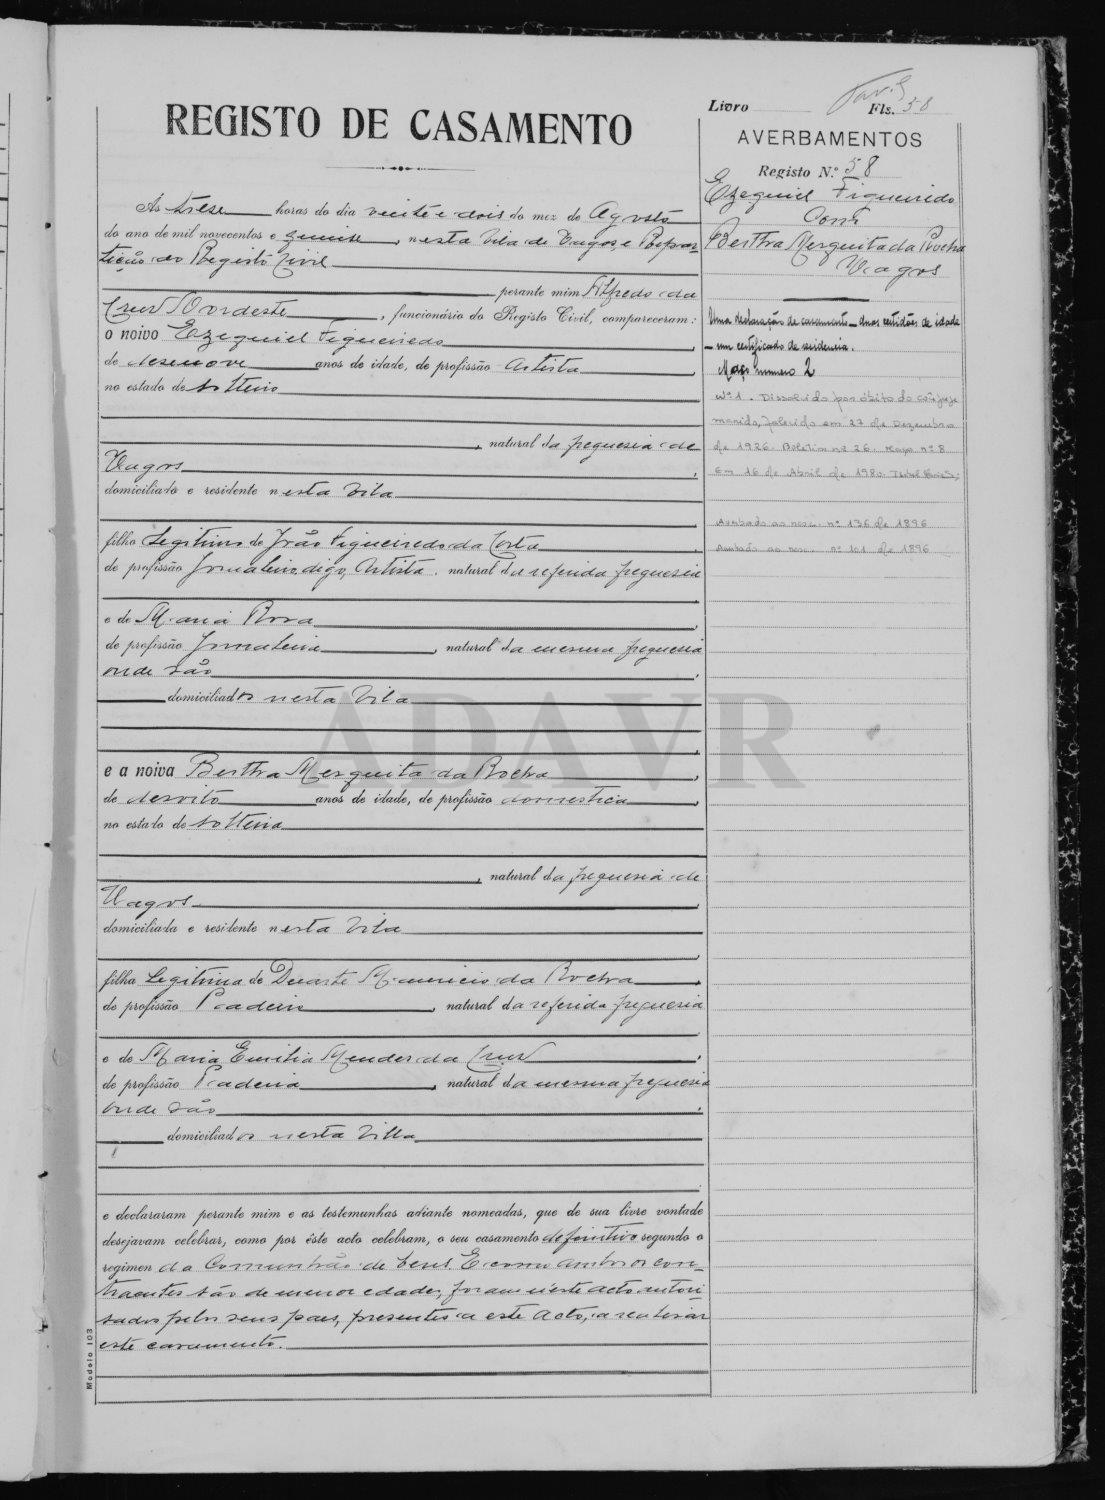 Livro Fls. 58
REGISTO DE CASAMENTO
Ás trese horas do dia vinte e dois do mez de Agosto
do ano de mil novecentos e quinse, nesta Vila de Vagos e Repar-
tição do Registo Civil
perante mim Alfredo da
Cruz Nordeste, funcionário do Registo Civil, compareceram:
o noivo Ezequiel Figueiredo
de desenove anos de idade, de profissão Artista,
no estado de solteiro
, natural da freguesia de
Vagos,
domiciliado e residente nesta Vila
filho Legitimo de João Figueiredo da Costa,
de profissão Jornaleiro, digo, Artista, natural da referida freguesia
e de Maria Rosa,
de profissão Jornaleira, natural da mesma freguesia
onde são,
domiciliados nesta Vila
e a noiva Berthra Mesquita da Rocha,
de desoito anos de idade, de profissão domestica,
no estado de solteira
, natural da freguesia de
Vagos,
domiciliada e residente nesta Vila
filha Legitima de Duarte Mauricio da Rocha,
de profissão Padeiro, natural da referida freguesia
e de Maria Emilia Mendes da Cruz,
de profissão Padeira, natural da mesma freguesia
onde são,
domiciliados nesta Villa
e declararam perante mim e as testemunhas adiante nomeadas, que de sua livre vontade
desejavam celebrar, como por êste acto celebram, o seu casamento definitivo segundo o
regimen da Comunhão de bens. E como ambos os con-
traentes são de menor edade, foram n'este acto autori-
sados pelos seus paes, presentes a este acto, a realisar
este casamento.
Modelo 103
AVERBAMENTOS
Registo N.º 58
Ezequiel Figueiredo
com
Berthra Mesquita da Rocha
Vagos
Uma declaração de casamento - duas certidões de idade
- um certificado de residencia.
Maço numero 2
Nº 1. Dissolvido por óbito do cônjuge
marido, falecido em 27 de Dezembro
de 1926. Boletim nº 26. Maço nº 8
Em 16 de Abril de 1980.
Averbado ao nasc. nº 136 de 1896
Averbado ao nasc. nº 101 de 1896
ADAVR